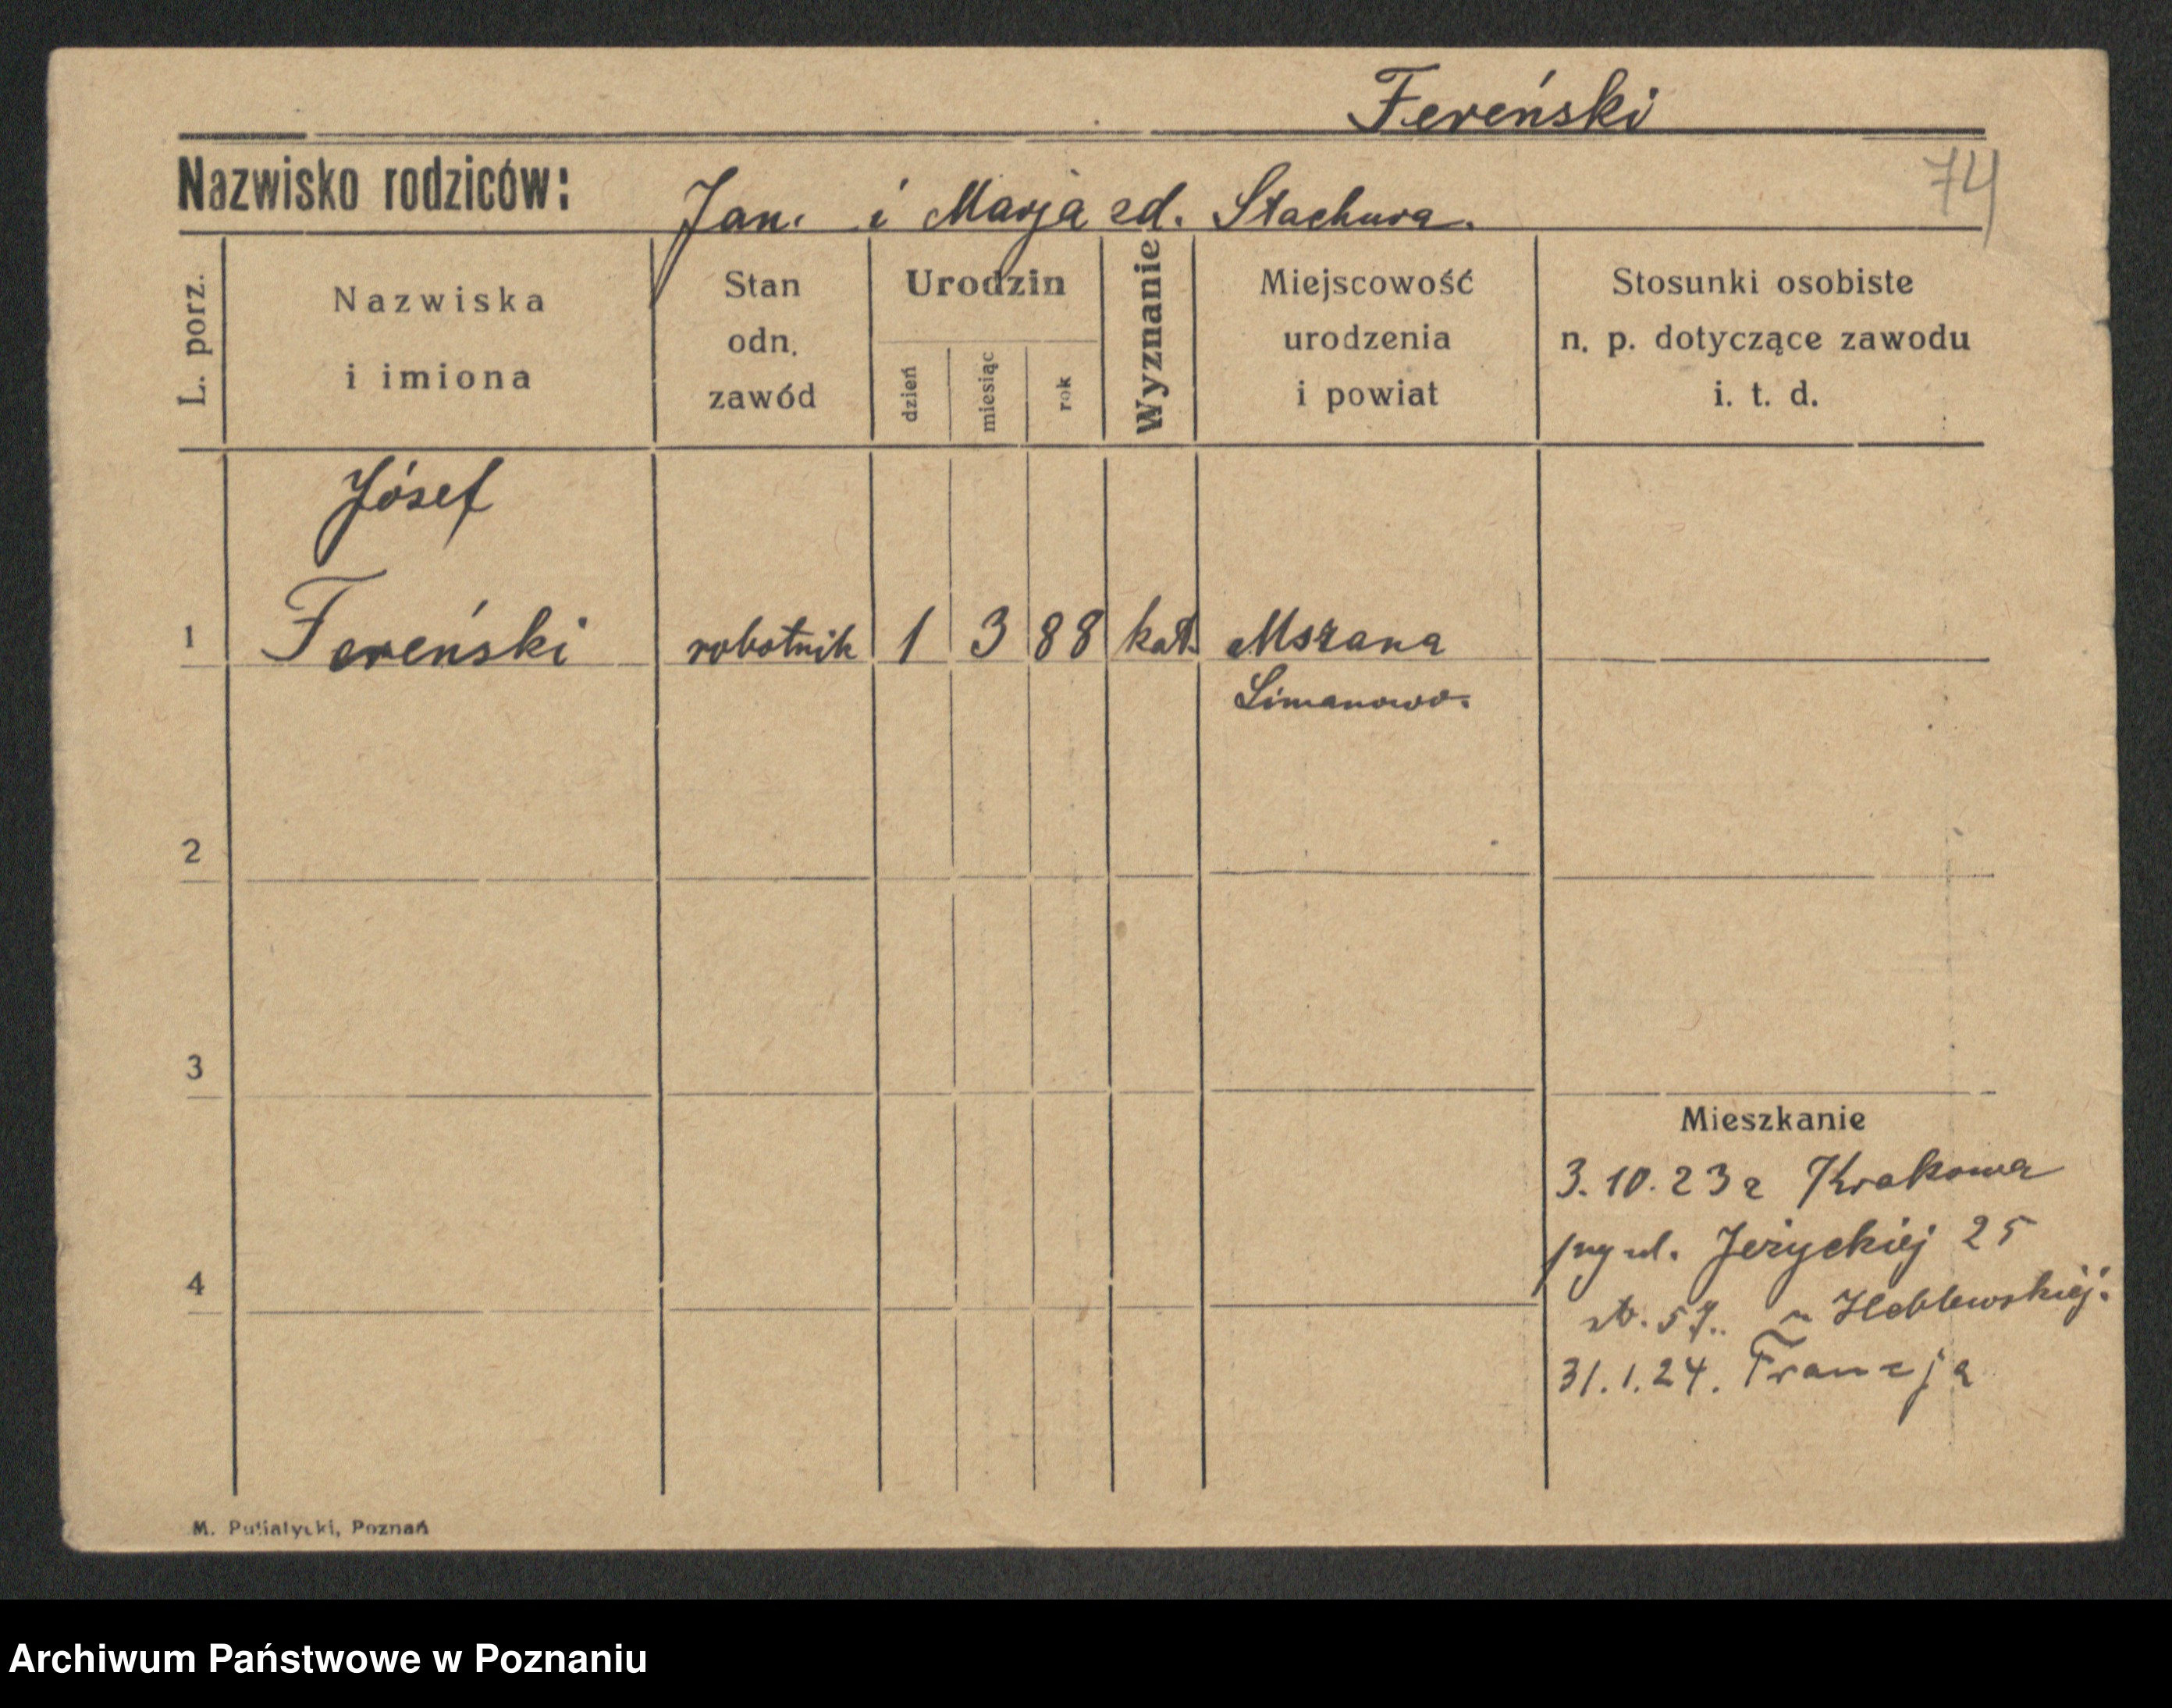 Fereński
Nazwisko rodziców: Jan. i Marja zd. Stachura.
74
L. porz.
Nazwiska
i imiona
Stan
odn.
zawód
Urodzin
dzień
miesiąc
rok
Wyznanie
Miejscowość
urodzenia
i powiat
Stosunki osobiste
n. p. dotyczące zawodu
i. t. d.
Józef
1 Fereński robotnik 1 3 88 kat. Mszana
Limanowo.
2
3
4
Mieszkanie
3.10.23 z Krakowa
przy ul. Jeżyckiej 25
57.
31.1.24. Francja
M. Putiatycki, Poznań
Archiwum Państwowe w Poznaniu